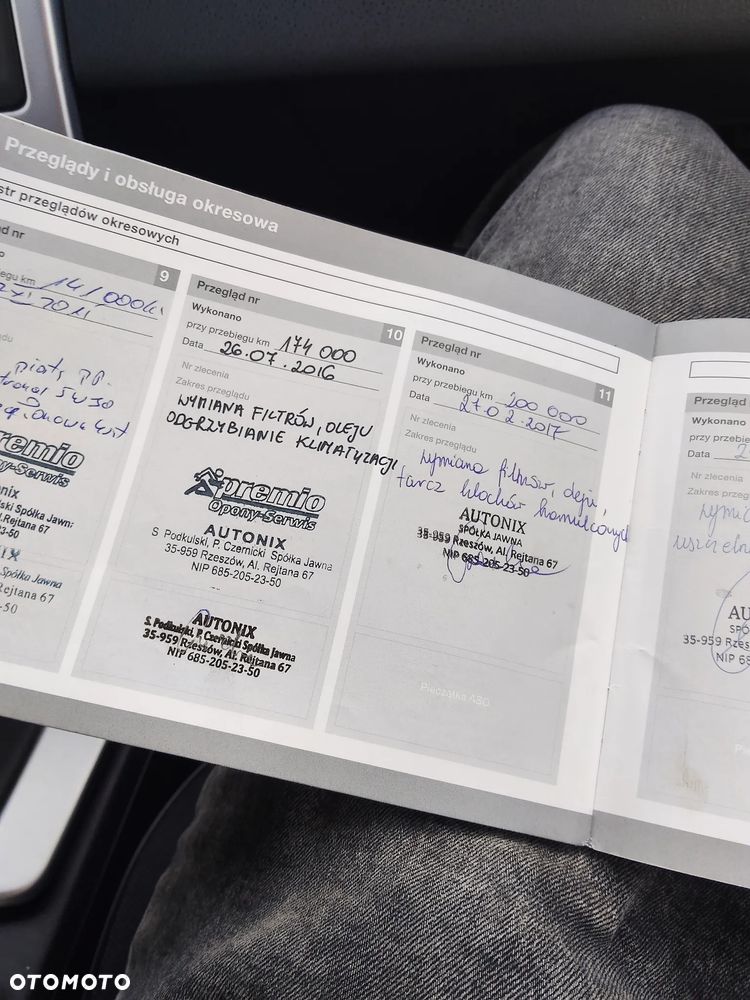 Przeglądy i obsługa okresowa
str przeglądów okresowych
ąd nr
9
egu km 141 000 km
2011
ądu
5W30
premio
Opony-Serwis
nix
ki Spółka Jawn
l.Rejtana 67
-53-50
IX
Spółka Jawna
ejtana 67
-50
Przegląd nr
10
Wykonano
przy przebiegu km 174 000
Data 26.07.2016
Nr zlecenia
Zakres przeglądu
WYMIANA FILTRÓW, OLEJU
ODGRZYBIANIE KLIMATYZACJI
premio
Opony-Serwis
AUTONIX
S Podkulski, P. Czernicki Spółka Jawna
35-959 Rzeszów, Al. Rejtana 67
NIP 685-205-23-50
AUTONIX
S. Podkulski, P. Czernicki Spółka Jawna
35-959 Rzeszów, Al. Rejtana 67
NIP 685-205-23-50
Przegląd nr
11
Wykonano
przy przebiegu km 200 000
Data 27.02.2017
Nr zlecenia
Zakres przeglądu
wymiana filtrów, oleju,
tarcz klocków hamulcowych
AUTONIX
SPÓŁKA JAWNA
35-959 Rzeszów, Al. Rejtana 67
NIP 685-205-23-50
Pieczątka ASO
Przegląd
Wykonano
przy przebie
Data 2
Nr zlecenia
Zakres przeg
wymia
uszczeln
AU
SPÓ
35-959 Rzes
NIP 68
OTOMOTO